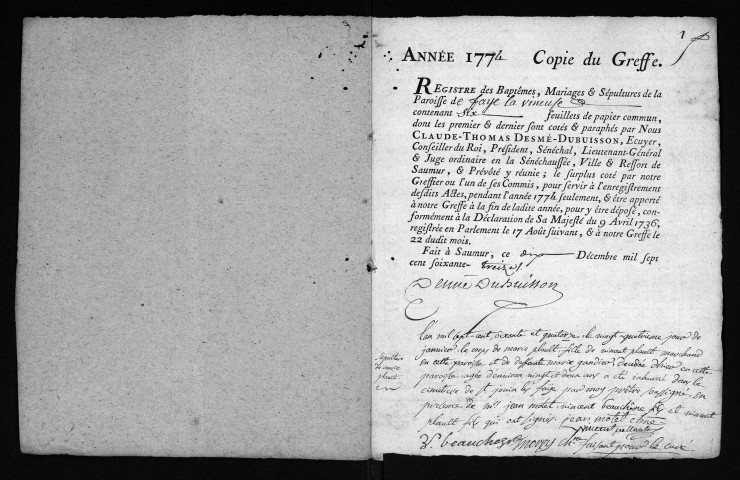 1
ANNÉE 1774 Copie du Greffe.
REGISTRE des Baptêmes, Mariages & Sépultures de la
Paroisse de faye la vineuse
contenant six feuillets de papier commun,
dont les premier & dernier sont cotés & paraphés par Nous
CLAUDE-THOMAS DESMÉ-DUBUISSON, Ecuyer,
Conseiller du Roi, Président, Sénéchal, Lieutenant-Général
& Juge ordinaire en la Sénéchaussée, Ville & Ressort de
Saumur, & Prévôté y réunie ; le surplus coté par notre
Greffier ou l'un de ses Commis, pour servir à l'enregistrement
desdits Actes, pendant l'année 1774 seulement, & être apporté
à notre Greffe à la fin de ladite année, pour y être déposé, con-
formément à la Déclaration de Sa Majesté du 9 Avril 1736,
registrée en Parlement le 17 Août suivant, & à notre Greffe le
22 dudit mois.
Fait à Saumur, ce dix Décembre mil sept
cent soixante-treize.
Desmé Dubuisson
L'an mil sept cent soixante et quatorze le vingt quatrieme jour de
janvier le corps de marie plault fille de vincent plault marchand
en cette paroisse et de deffunte marie décedée d'hier en cette
paroisse agée d'environ vingt et deux ans a été inhumé dans le
cimetiere de St jouin les faye par moy prêtre soussigné en
presence de jean motet, vincent beauchêne et vincent
plault fils qui ont signés. jean motet
vincent plault
V. beauchesne faisant pour le curé
sepulture
de marie
plault